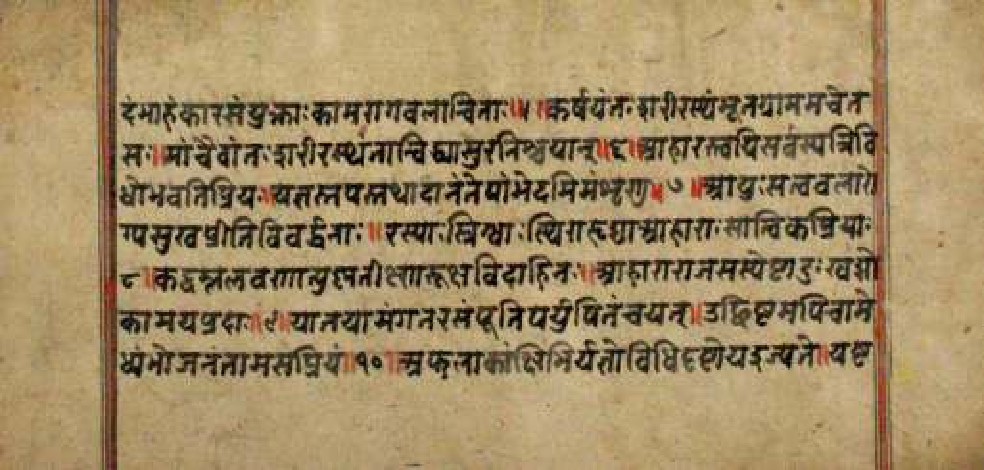 दंभाहंकारसंयुक्ताः कामरागवलान्विताः ॥५॥ कर्षयंतः शरीरस्थंभूतग्राममचेत
सः ॥ मां चैवांतः शरीरस्थंतान्विद्ध्यासुरनिश्चयान् ॥६॥ आहारस्त्वपिसर्वस्यत्रिवि
धोभवतिप्रियः ॥ यज्ञस्तपस्तथादानंतेषांभेदमिमंशृणु ॥७॥ आयुःसत्ववलारो
ग्यसुखप्रीतिविवर्द्धनाः ॥ रस्याःस्निग्धाःस्थिराहृद्याआहाराःसात्विकप्रियाः
८॥ कट्वम्ललवणात्युष्णतीक्ष्णरूक्षविदाहिनः ॥ आहाराराजसस्येष्टादुःखशो
कामयप्रदाः ॥९॥ यातयामंगतरसंपूतिपर्युषितंचयत् ॥ उच्छिष्टमपिचामे
ध्यंभोजनंतामसप्रियं ॥१०॥ अफलाकांक्षिभिर्यज्ञोविधिदृष्टोयइज्यते ॥ यष्ट